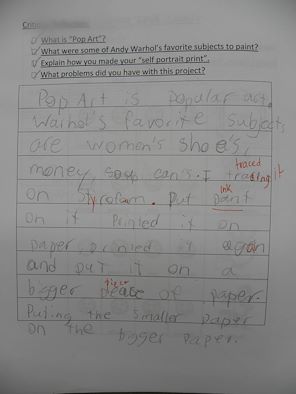 Critical Reflection:
What is "Pop Art"?
What were some of Andy Warhol's favorite subjects to paint?
Explain how you made your "self portrait print".
What problems did you have with this project?
Pop Art is popular art.
Warhol's favorite subjects
are women's shoe's,
traced
money, soup can's. I tracing it
ink
on Styrofam. Put paint
on it Printed it on
paper printed it again
and put it on a
piece
bigger please of paper.
Puting the smaller paper
on the bigger paper.